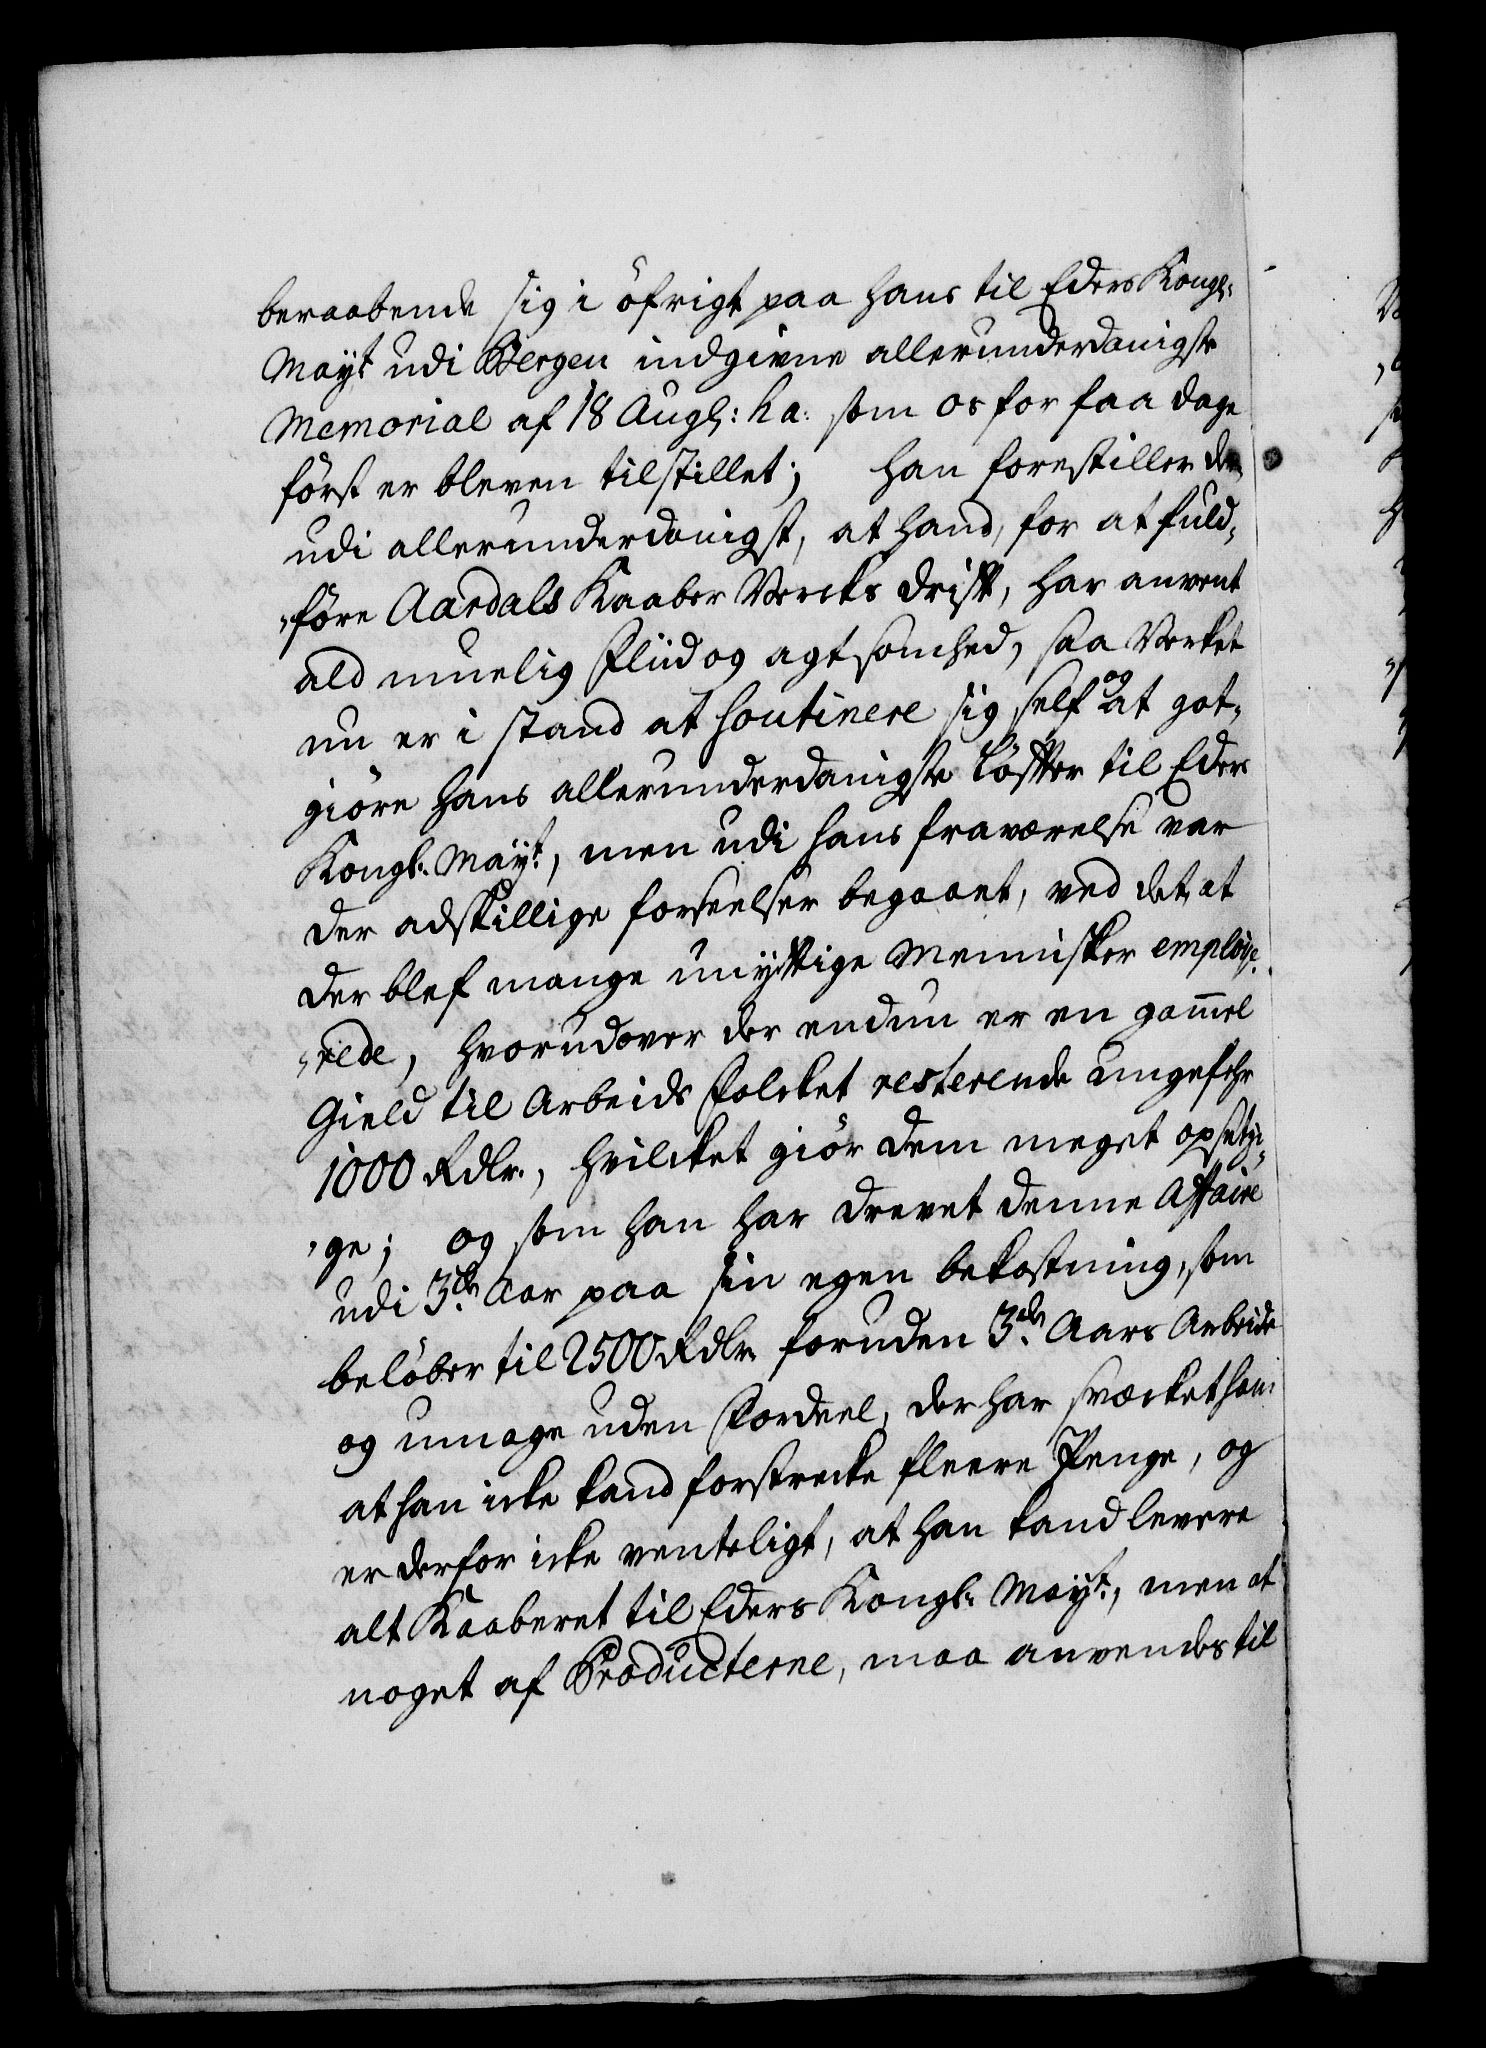 beraabende sig i öfrigt paa hans til Eders Kongl:
Mayt udi Bergen indgivne allerunderdanigste
Memorial af 18 Aug: h.a: som os for faa dage
först er bleven tilstillet; han forestiller der
udi allerunderdanigst, at hand, for at fuld-
före Aardals Kaaber Vercks drift, har anvent
ald muelig Fliid og agtsomhed, saa Verket
nu er i stand at soutinere sig self og at got-
giöre hans allerunderdanigste Löfter til Eders
Kongl. Mayt., men udi hans fraværelse var
der adskillige forseelser begaaet, ved det, at
der blef mange unyttige Mennisker emploije-
rede, hvorudover der endnu er en gam̅el
Gield til Arbeids Folcket resterende ungefehr
1000 Rdlr., hvilcket giör dem meget opsetzi-
ge; og som han har drevet denne Affaire
udi 3de Aar paa sin egen bekostning, som
belöber til 2500 Rdlr. foruden 3de Aars Arbeide
og umage uden Fordeel, der har svæcket ham
at han icke kand forstrecke fleere Penge, og
er derfor icke venteligt, at han kand levere
alt Kaaberet til Eders Kongl. Mayt., men at
noget af Producterne, maa anvendes til